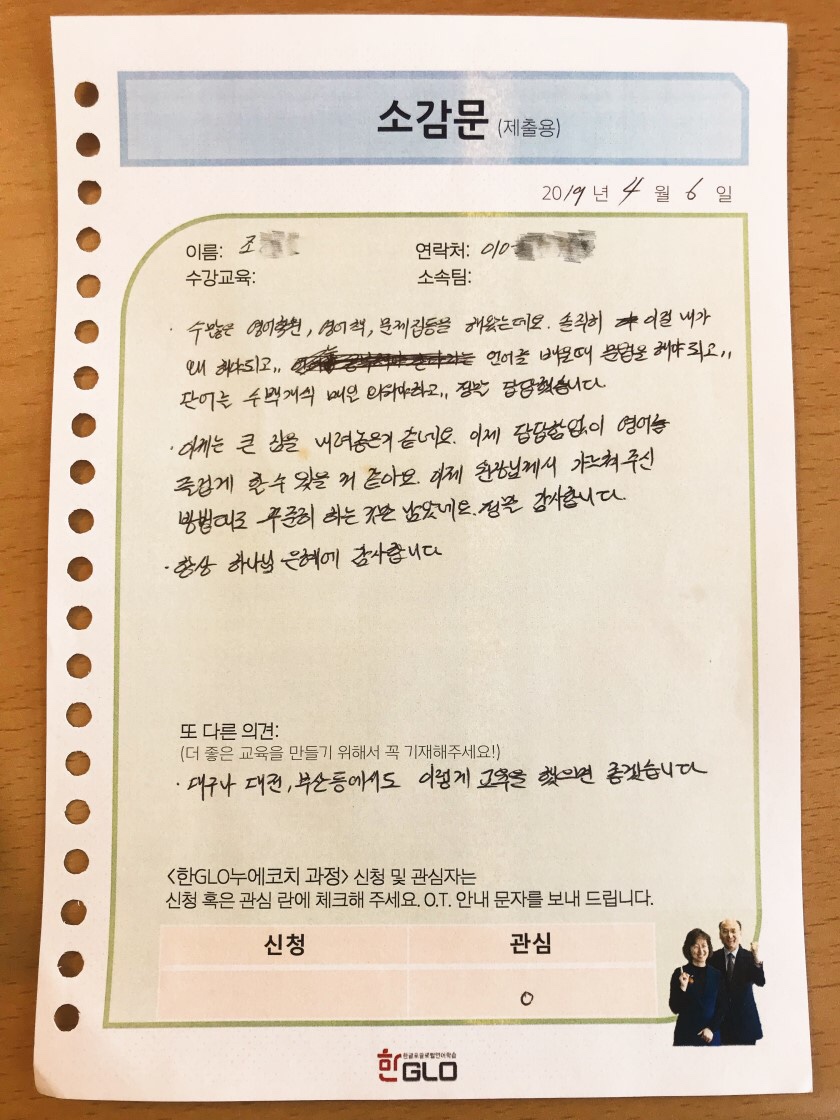 소감문 (제출용)
2019 년 4 월 6 일
이름: 조
연락처: 010-
수강교육:
소속팀:
· 수많은 영어학원, 영어책, 문제집등을 해왔는데요. 솔직히 이걸 내가
왜 해야되고,, 언어를 배울때 문법을 해야 되고,,
단어는 수백개씩 매일 외워야하고,, 정말 답답했습니다.
· 이제는 큰 짐을 내려놓은거 같네요. 이제 답답함없이 영어를
즐겁게 할 수 있을 거 같아요. 이제 원장님께서 가르쳐 주신
방법대로 꾸준히 하는 것만 남았네요. 정말 감사합니다.
· 항상 하나님 은혜에 감사합니다
또 다른 의견:
(더 좋은 교육을 만들기 위해서 꼭 기재해주세요!)
· 대구나 대전, 부산등에서도 이렇게 교육을 했으면 좋겠습니다
<한GLO누에코치 과정> 신청 및 관심자는
신청 혹은 관심 란에 체크해 주세요. O.T. 안내 문자를 보내 드립니다.
신청 관심
O
한글로글로벌언어학습
한GLO